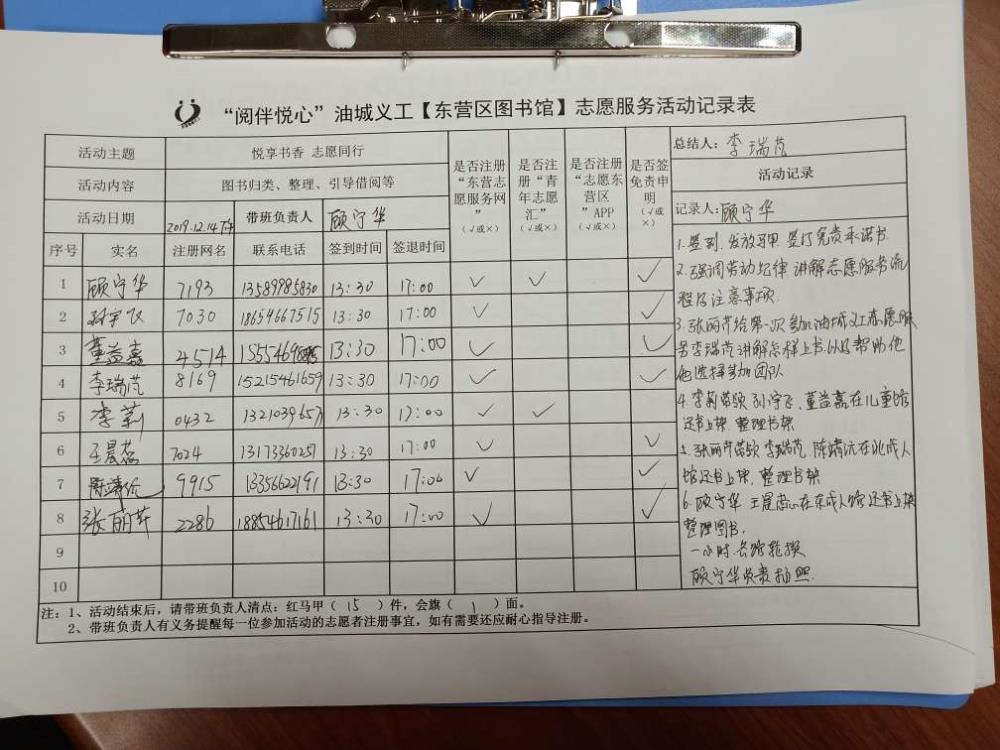 “阅伴悦心”油城义工【东营区图书馆】志愿服务活动记录表
活动主题 悦享书香 志愿同行
活动内容 图书归类、整理、引导借阅等
活动日期 2019.12.14下午 带班负责人 顾宁华
序号 实名 注册网名 联系电话 签到时间 签退时间 是否注册“东营志愿服务网”(√或×) 是否注册“青年志愿汇”(√或×) 是否注册“志愿东营区”APP(√或×) 是否签免责申明(√或×)
1 顾宁华 7193 13589985830 13:30 17:00 √ √ √
2 孙宇飞 7030 18654667515 13:30 17:00 √ √
3 董益嘉 4514 13:30 17:00 √ √
4 李瑞芃 8169 15215461659 13:30 17:00 √ √
5 李莉 0432 1321039657 13:30 17:00 √ √
6 王晨蕊 7024 13173360257 13:30 17:00 √ √
7 陈靖沅 9915 13356622191 13:30 17:00 √ √
8 张丽芹 2286 18854617161 13:30 17:00 √ √
9
10
总结人：李瑞芃
活动记录
记录人：顾宁华
1.签到.发放马甲 签订免责承诺书.
2.强调劳动纪律 讲解志愿服务流
程及注意事项.
3.张丽芹给第一次参加油城义工志愿服
务李瑞芃讲解怎样上书.以及帮助他
选择参加团队
4.李莉带领 孙宇飞、董益嘉在儿童馆
还书上架.整理书架
张丽芹带领李瑞芃、陈靖沅在北成人
馆还书上架,整理书架
6.顾宁华 王晨蕊在东成人馆还书上架
整理图书.
一小时 轮换
顾宁华负责拍照.
注：1、活动结束后，请带班负责人清点：红马甲（ 15 ）件，会旗（ 1 ）面。
2、带班负责人有义务提醒每一位参加活动的志愿者注册事宜，如有需要还应耐心指导注册。